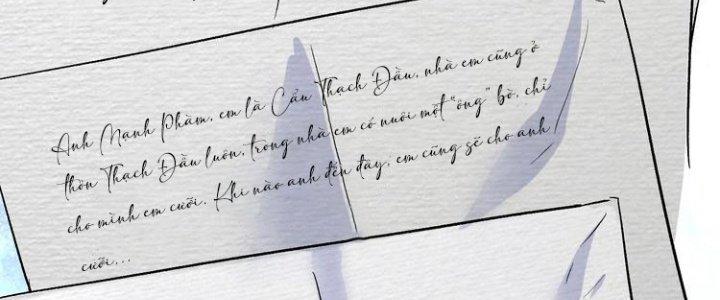 Anh Mạnh Phàm, em là Cẩu Thạch Đầu, nhà em cũng ở
thôn Thạch Đầu luôn, trong nhà em có nuôi một "ông" bò, chỉ
cho mình em cưỡi. Khi nào anh đến đây, em cũng sẽ cho anh
cưỡi...